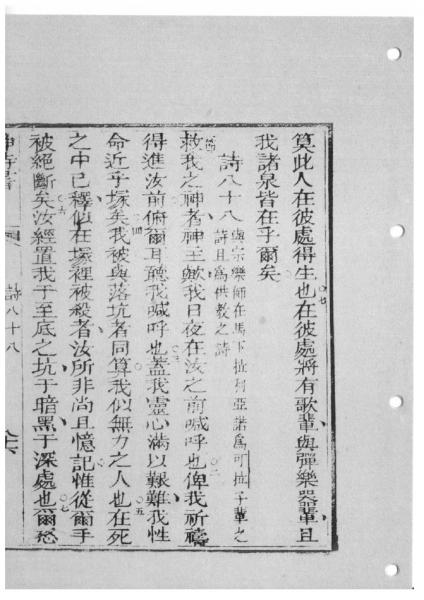 算此人在彼處得生也○七在彼處將有歌輩與彈樂器輩且
我諸泉皆在乎爾矣
詩八十八 與宗樂師在馬下拉利亞諾爲可拉子輩之
詩且爲供教之詩
救我之神者神主歟我日夜在汝之前喊呼也○二俾我祈禱
得進汝前俯爾耳聽我喊呼也○三蓋我靈心滿以艱難我性
命近乎塚矣○四我被與落坑者同算我似無力之人也○五在死
之中已釋似在塚裡被殺者汝所非尚且憶記惟從爾手
被絕斷矣○六汝經置我于至底之坑于暗黑于深處也○七爾怒
詩八十八